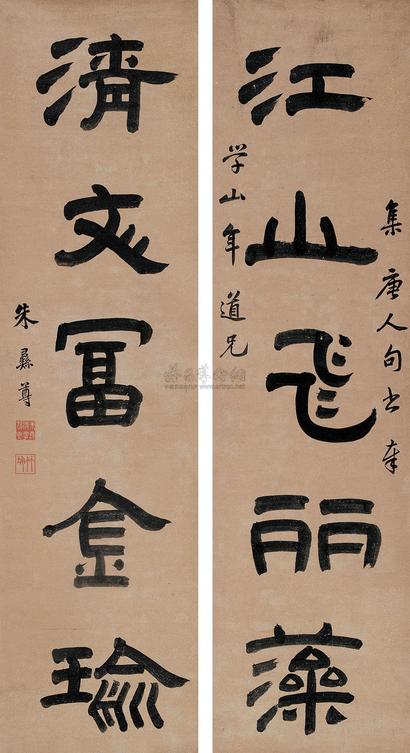 集唐人句书奉
江山飞丽藻
学山年道兄
濟文冨金瑜
朱彝尊